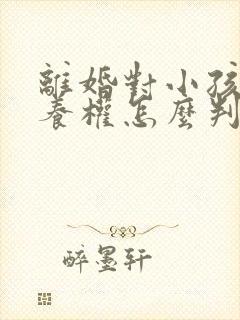 離婚對小孩
養權怎麼判
醉墨轩